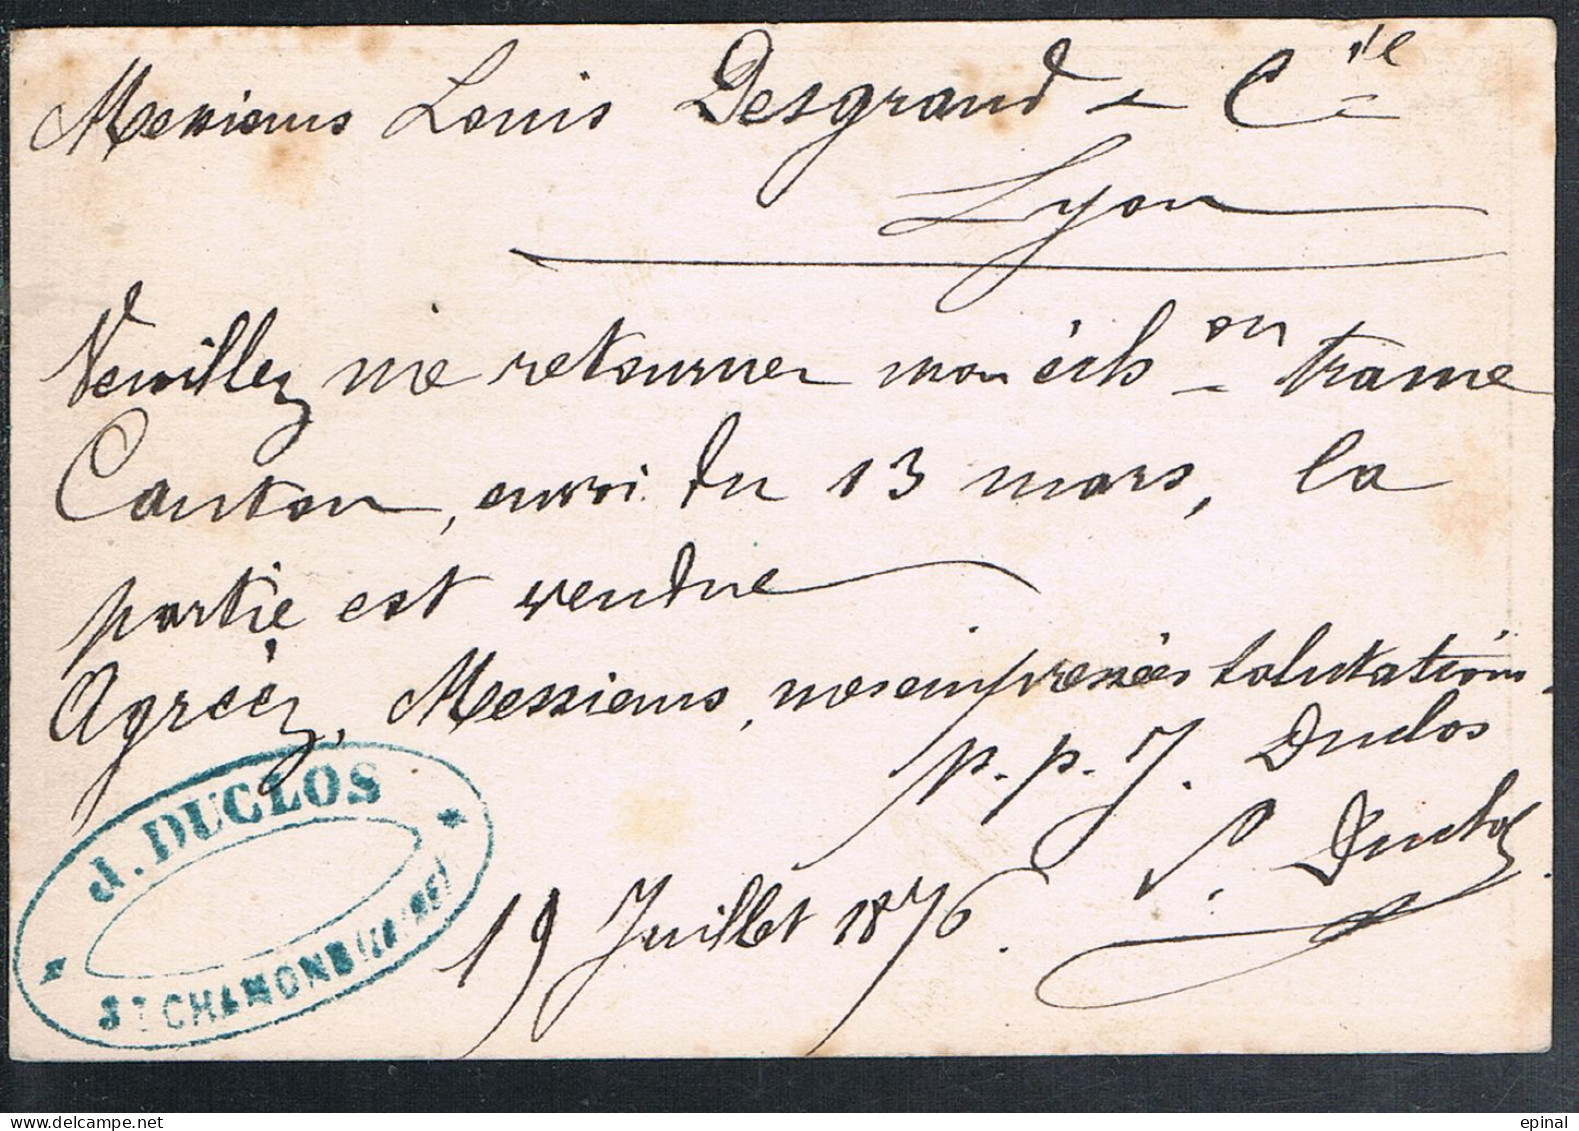 Messieurs Louis Desgrand & Cie
Lyon
Veuillez me retourner mon éch on trame
Canton, envoi du 13 mars, la
partie est vendue
Agréez, Messieurs, nos empressées salutations.
p.p. J. Duclos
P. Duclos
19 Juillet 1876.
J. DUCLOS
ST CHAMOND (LOIRE)
delcampe.net
epinal